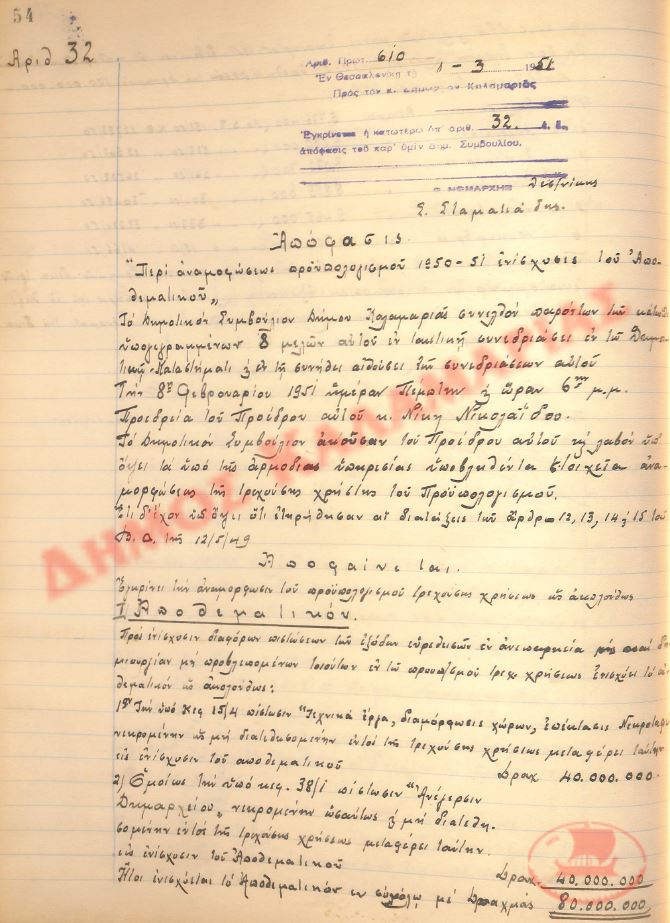 54
Αριθ 32
Αριθ. Πρωτ. 610
Ἐν Θεσσαλονίκῃ τῇ 1-3 1951
Πρὸς τὸν κ. Δήμαρχον Καλαμαριᾶς
Ἐγκρίνεται ἡ κατωτέρω ὑπ' ἀριθ. 32
ἀπόφασις τοῦ παρ' ὑμῖν Δημ. Συμβουλίου.
Ο ΝΟΜΑΡΧΗΣ Θεσ/νίκης
Σ. Σταματιάδης.
Ἀπόφασις.
"Περὶ ἀναμορφώσεως προϋπολογισμοῦ 1950-51 ἐνίσχυσις τοῦ Ἀπο-
θεματικοῦ"
Τὸ Δημοτικὸν Συμβούλιον Δήμου Καλαμαριᾶς συνελθὸν παρόντων τῶν κάτωθι
ὑπογεγραμμένων 8 μελῶν αὐτοῦ ἐν τακτικῇ συνεδριάσει ἐν τῷ Δημο
τικῷ Καταστήματι & ἐν τῇ συνήθει αἰθούσῃ τῶν συνεδριάσεων αὐτοῦ
Τὴν 8ην Φεβρουαρίου 1951 ἡμέραν Πέμπτην & ὥραν 6ην μ.μ.
Προεδρεία τοῦ Προέδρου αὐτοῦ κ. Νίκη Νικολαΐδου.
Τὸ Δημοτικὸν Συμβούλιον ἀκοῦσαν τοῦ Προέδρου αὐτοῦ κ λαβὸν ὑπ'
ὄψει τὰ ὑπὸ τῆς ἁρμοδίας ὑπηρεσίας ὑποβληθέντα στοιχεῖα ἀνα-
μορφώσεως τῆς τρεχούσης χρήσεως τοῦ Προϋπολογισμοῦ.
Ἔτι δ' ἔχον ὑπ' ὄψει ὅτι ἐτηρήθησαν αἱ διατάξεις τῶν ἄρθρων 12, 13, 14 & 15 τοῦ
Β.Δ. τῆς 12/5/49
Ἀποφαίνεται.
Ἐγκρίνει τὴν ἀναμόρφωσιν τοῦ προϋπολογισμοῦ τρεχούσης χρήσεως ὡς ἀκολούθως
1) Ἀποθεματικόν.
Πρὸς ἐνίσχυσιν διαφόρων πιστώσεων τῶν ἐξόδων εὑρεθεισῶν ἐν ἀνεπαρκείᾳ δη
μιουργίαν μὴ προβλεπομένων τοιούτων ἐν τῷ προϋπ/σμοῦ τρεχ χρήσεως ἐνισχύει τὸ ἀπο
θεματικὸν ὡς ἀκολούθως:
1ον Τὴν ὑπὸ κεφ 15/4 πίστωσιν "Τεχνικὰ ἔργα, διαμόρφωσις χώρων, ἐπέκτασις Νεκροταφ
νεκρομένην ὡς μὴ διατεθησομένην ἐντὸς τῆς τρεχούσης χρήσεως μεταφέρει ταύτην
εἰς ἐνίσχυσιν τοῦ ἀποθεματικοῦ Δραχ 40.000.000.
2) Ὁμοίως τὴν ὑπὸ κεφ. 38/1 πίστωσιν "Ἀνέγερσιν
Δημαρχείου" νεκρομένην ὡσαύτως & μὴ διατεθη.
σομένην ἐντὸς τῆς τρεχούσης χρήσεως μεταφέρει ταύτην.
εἰς ἐνίσχυσιν τοῦ Ἀποθεματικοῦ Δραχ 40.000.000
Ἤτοι ἐνισχύεται τὸ Ἀποθεματικὸν ἐν συνόλῳ μὲ Δραχμὰς 80.000.000
ΔΗΜΟΣ ΚΑΛΑΜΑΡΙΑΣ